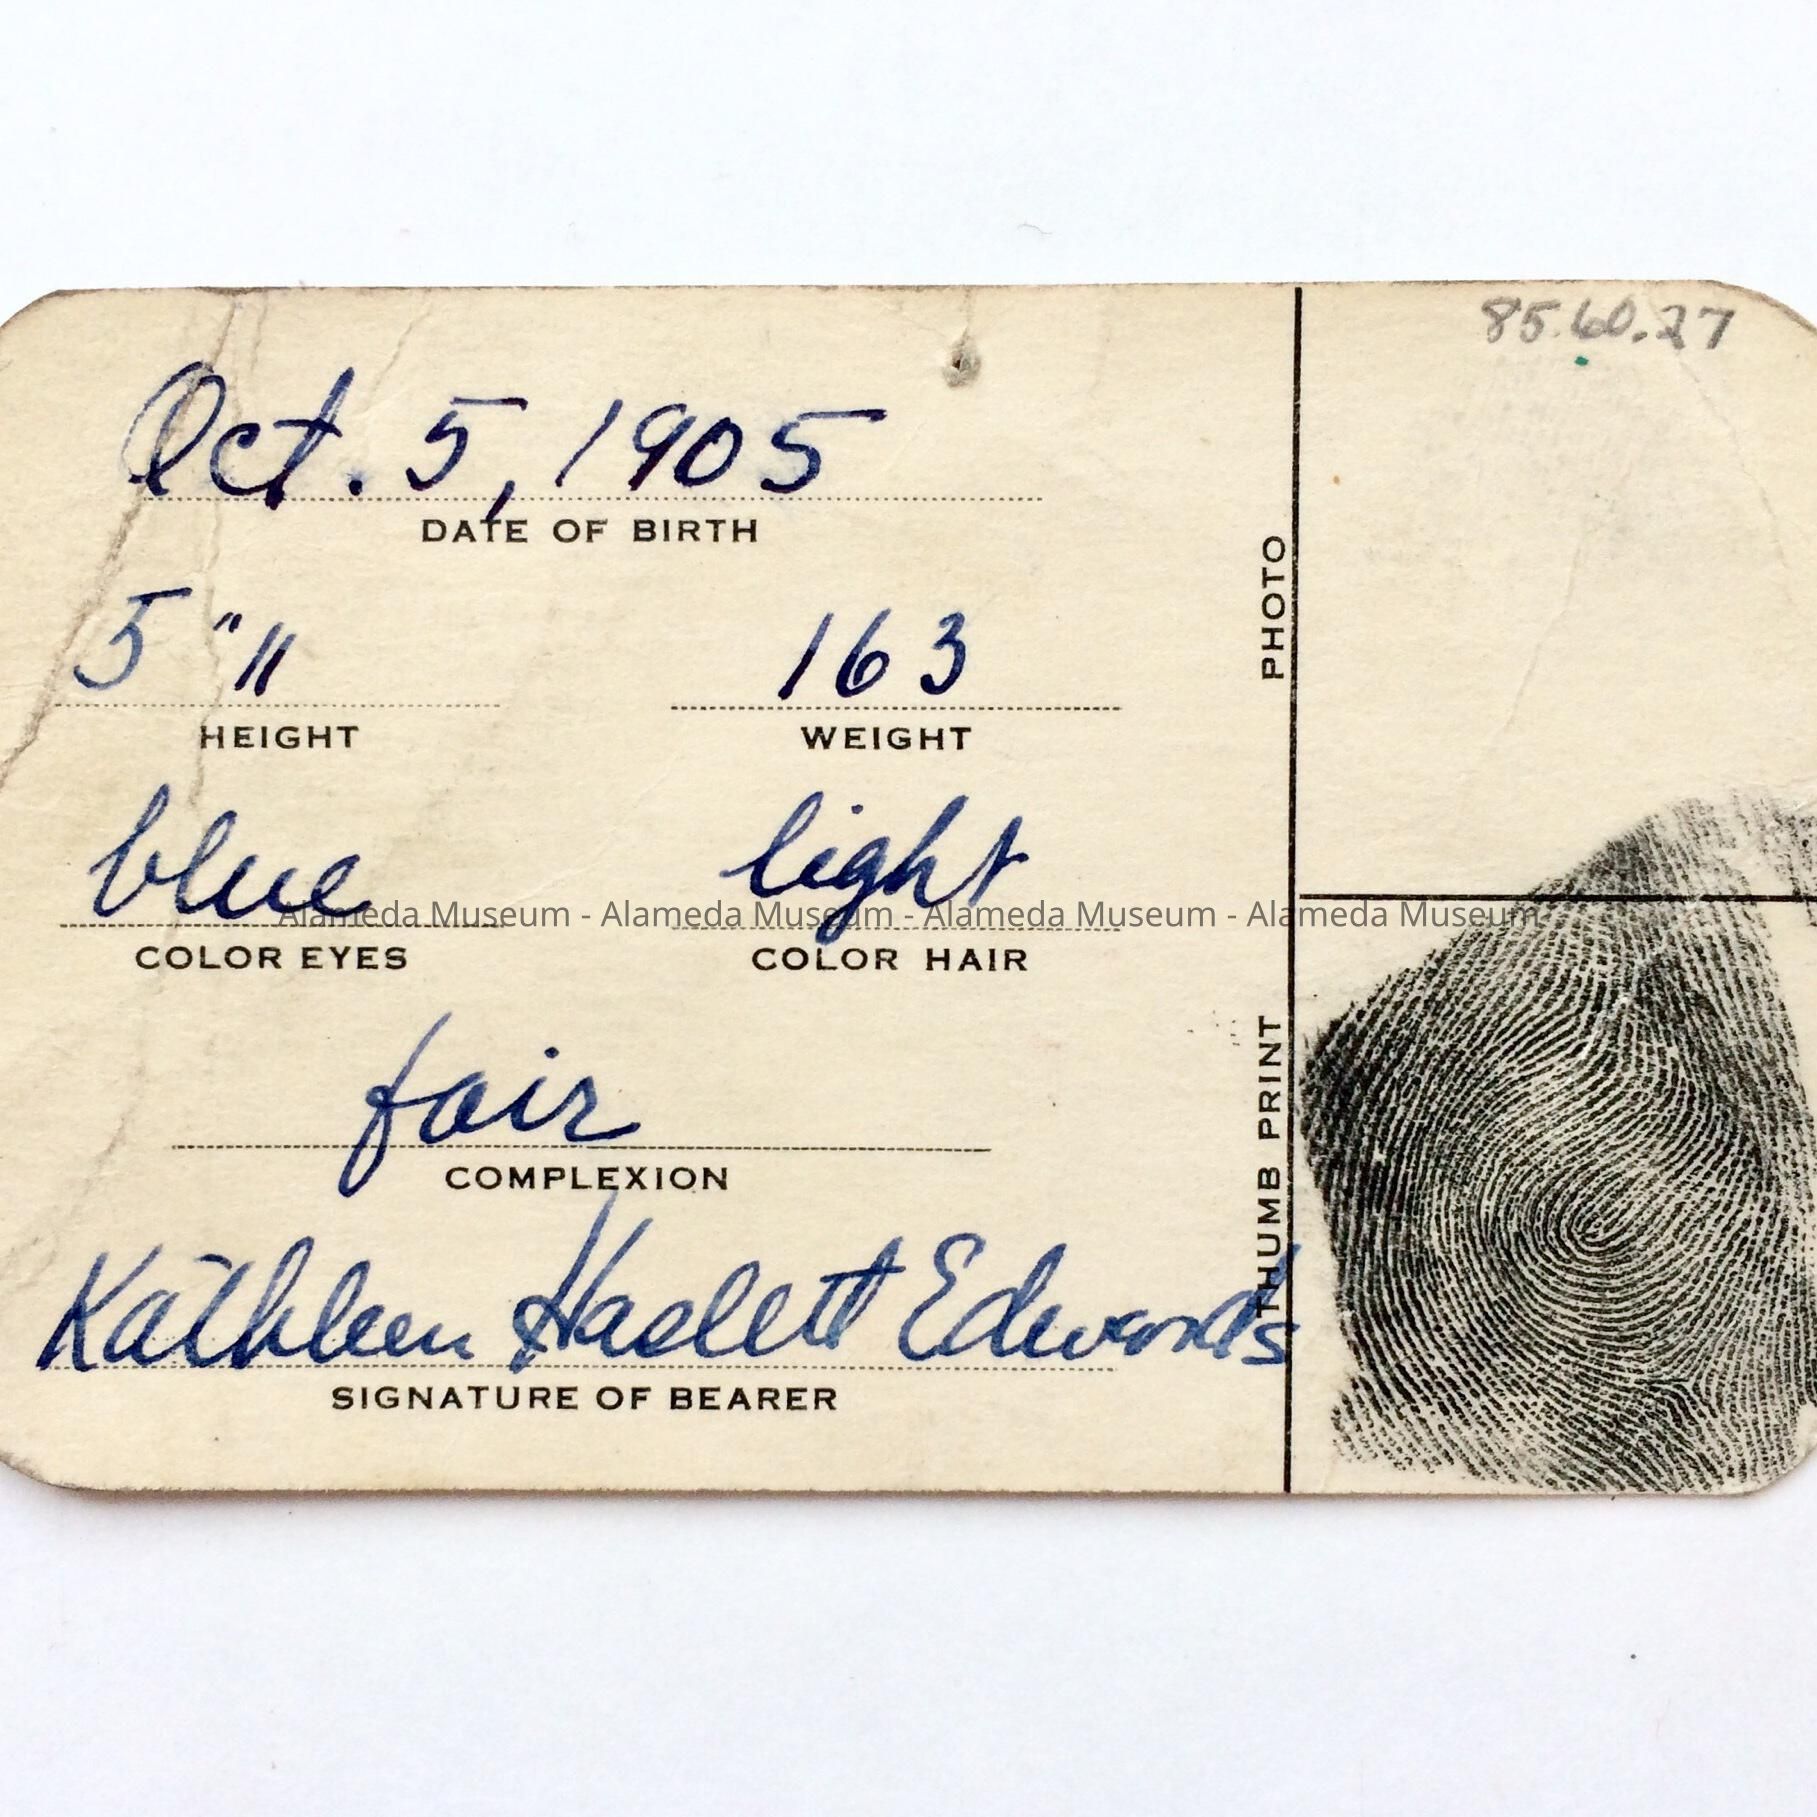 85.60.27
Oct. 5, 1905
DATE OF BIRTH
5 " 11
163
HEIGHT
WEIGHT
PHOTO
blue
light
Alameda Museum - Alameda Museum - Alameda Museum - Alameda Museum
COLOR EYES
COLOR HAIR
fair
COMPLEXION
THUMB PRINT
Kathleen Haslett Edwards
SIGNATURE OF BEARER